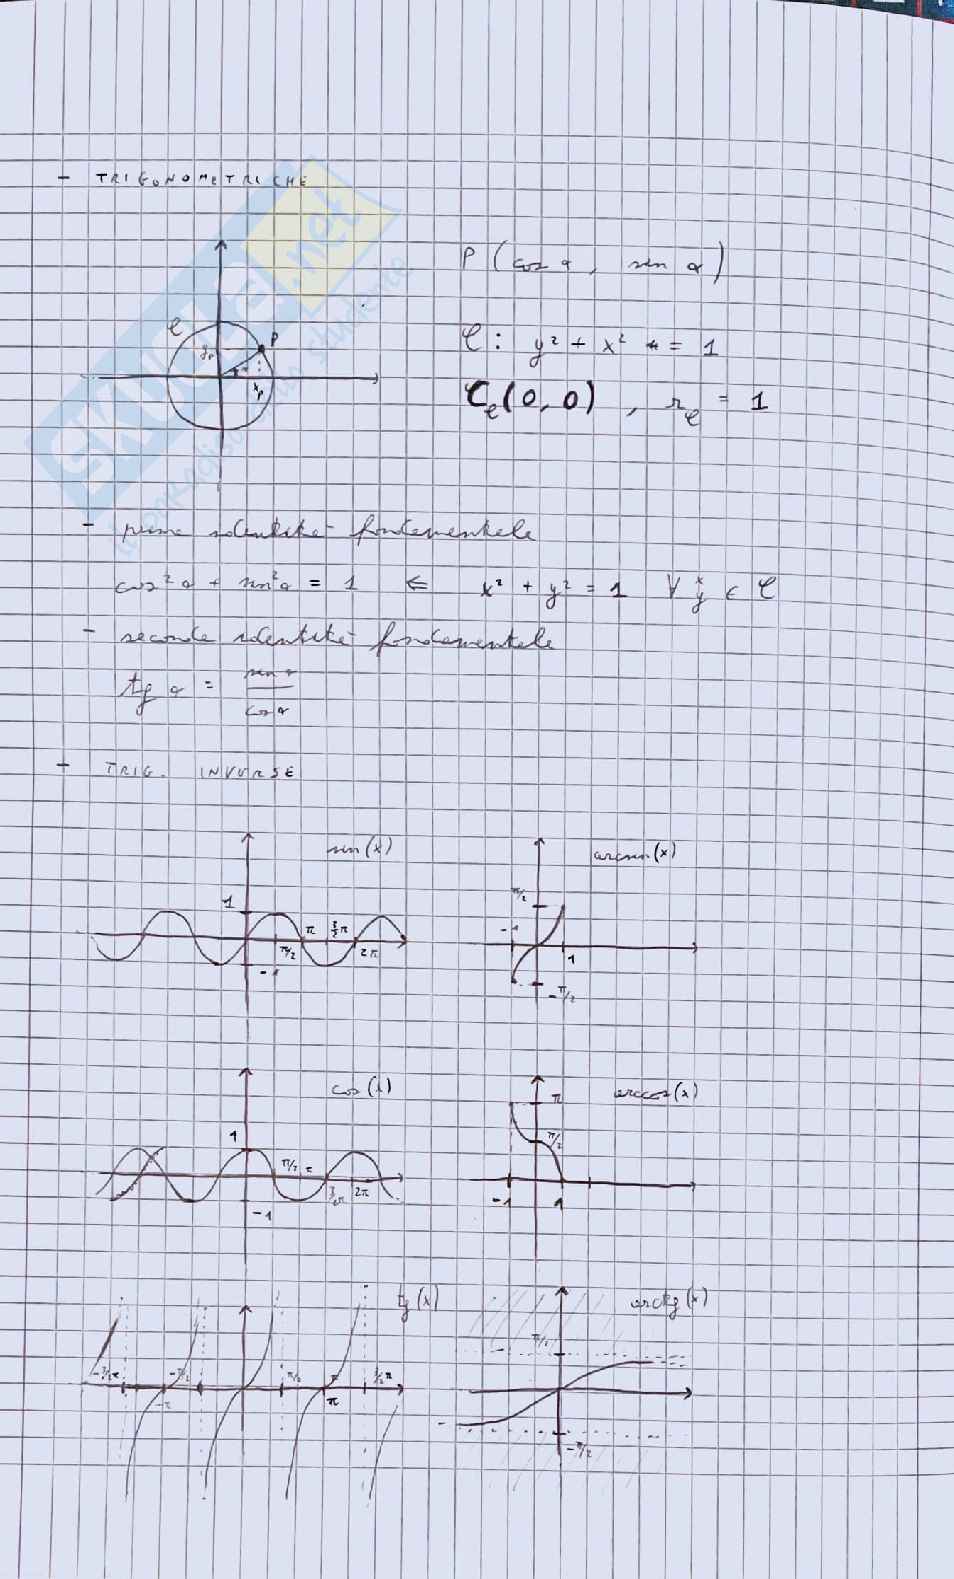 - TRIGONOMETRICHE
P (cos α, sin α)
C
P
yₚ
α
xₚ
C: y² + x² = 1
C_C (0, 0), r_C = 1
- prima identità fondamentale
cos² α + sin² α = 1 ⇐ x² + y² = 1 ∀ x, y ∈ C
- seconda identità fondamentale
tg α = sin α / cos α
- TRIG. INVERSE
sin(x)
1
-1
π/2
π
3/2 π
2π
arcsin(x)
π/2
-1
1
-π/2
cos(x)
1
-1
π/2
π
3/2 π
2π
arccos(x)
π
π/2
-1
1
tg(x)
-3/2 π
-π
-π/2
π/2
π
3/2 π
arctg(x)
π/2
-π/2
SKUOLA.net